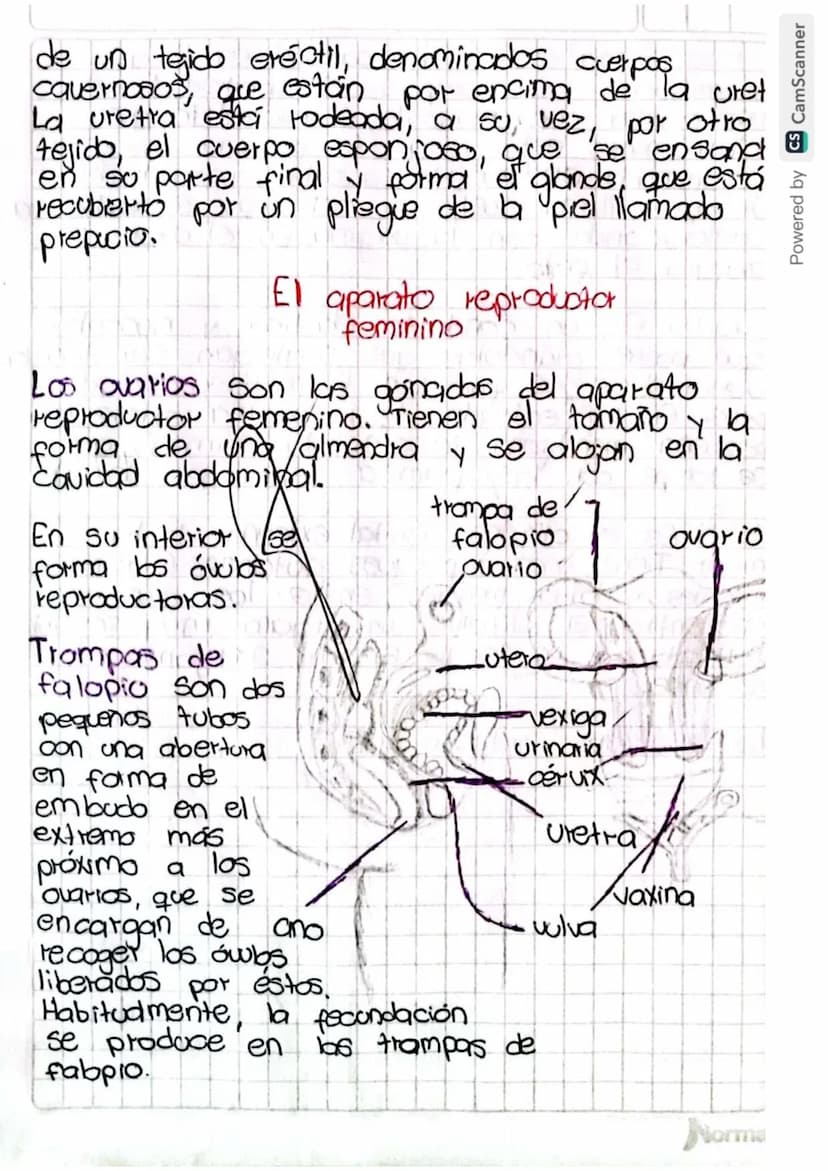 de un tejido eréctil, denominados cuerpos
cavernosos, que están por encima de la uret
La uretra está rodeada, a su, vez, por otro
tejido, el cuerpo esponjoso, que se ensand
en su parte final y forma el glande, que está
recubierto por un pliegue de la piel llamado
prepucio.
El aparato reproductor
feminino
Los ovarios son las gónadas del aparato
reproductor femenino. Tienen el tamaño y la
forma de una almendra y se alojan en la
cavidad abdominal.
En su interior se
forma los óvulos
reproductoras.
Trompas de
falopio son dos
pequeños tubos
con una abertura
en forma de
embudo en el
extremo más
próximo a los
ovarios, que se
encargan de
recoger los óvulos
liberados por éstos.
Habitualmente, la fecundación
se produce en las trampas de
falopio.
trompa de
falopio
ovario
ovario
utero
vexiga
urinaria
cérvix
uretra
vaxina
vulva
ano
Norma
Powered by CS CamScanner